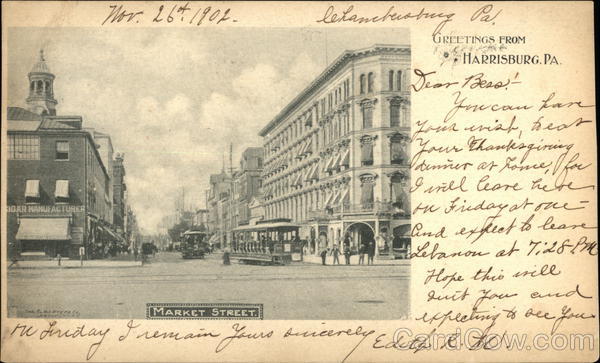 Nov. 26th. 1902. Chambersburg Pa.
GREETINGS FROM
HARRISBURG, PA.
Dear Bess!-
You can have
your wish, to eat
Your Thanksgiving
dinner at home, for
I will leave here
on Friday at one-
and expect to leave
Lebanon at 7:28 P.M
Hope this will
suit you and
expecting to see you
on Friday I remain Yours sincerely
Edith C.
CIGAR MANUFACTURER
MARKET STREET.
CardCow.com